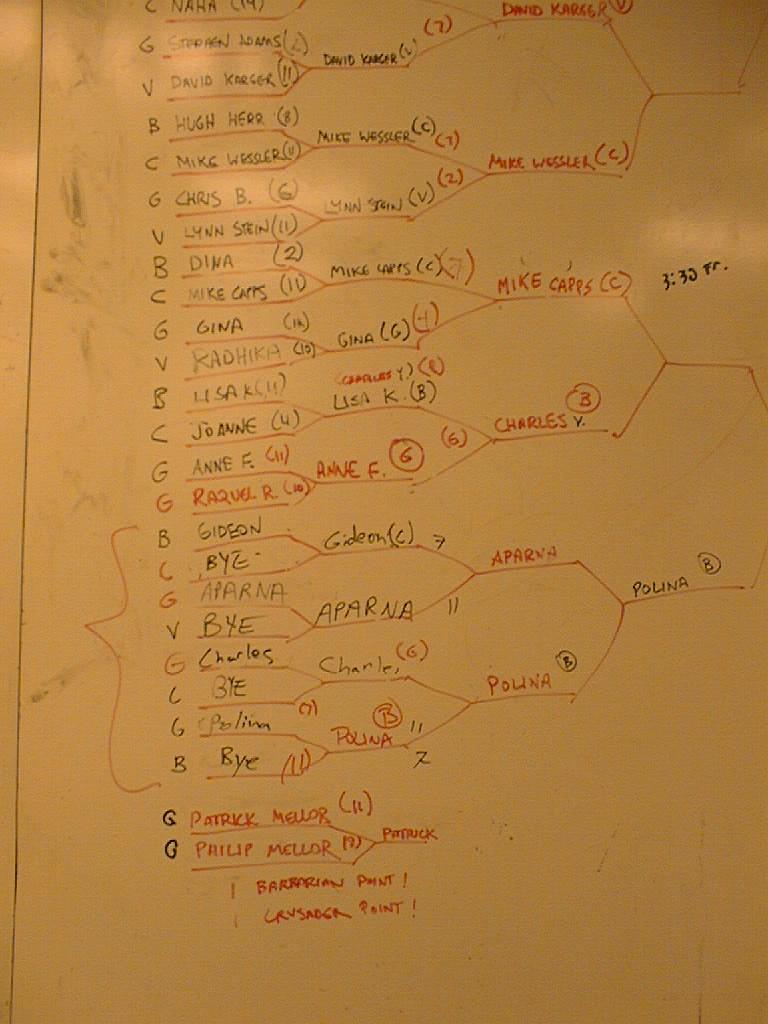 C NAHA (14)
DAVID KARGER (V)
(7)
G STEPHEN ADAMS (2)
DAVID KARGER (V)
V DAVID KARGER (11)
B HUGH HERR (8)
MIKE WESSLER (C) (7)
C MIKE WESSLER (11)
MIKE WESSLER (C)
G CHRIS B. (6)
LYNN STEIN (V) (2)
V LYNN STEIN (11)
B DINA (2)
MIKE CAPPS (C) (7)
C MIKE CAPPS (11)
MIKE CAPPS (C)
3:30 Fr.
G GINA
GINA (G)
V RADHIKA (10)
B LISA K (11)
(CHARLES Y.)
LISA K. (B)
C JOANNE (4)
CHARLES Y. B
(6)
G ANNE F. (11)
ANNE F. G
G RAQUEL R. (10)
B GIDEON
Gideon (C) 7
C BYE
APARNA
G APARNA
APARNA 11
V BYE
POLINA B
G Charles
Charles (6)
C BYE
POLINA B
(7)
G Polina
POLINA B 11
B Bye (11)
7
G PATRICK MELLOR (11)
PATRICK
G PHILIP MELLOR
1 BARBARIAN POINT!
1 CRUSADER POINT!